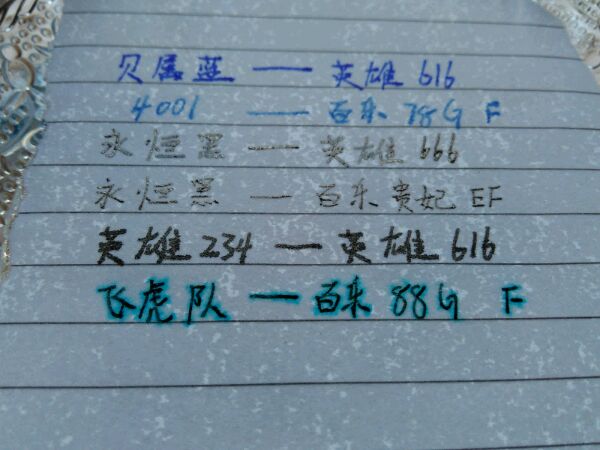 贝属蓝 — 英雄 616
4001 — 百乐 78G F
永烜黑 — 英雄 666
永烜黑 — 百乐贵妃 EF
英雄 234 — 英雄 616
飞虎队 — 百乐 88G F